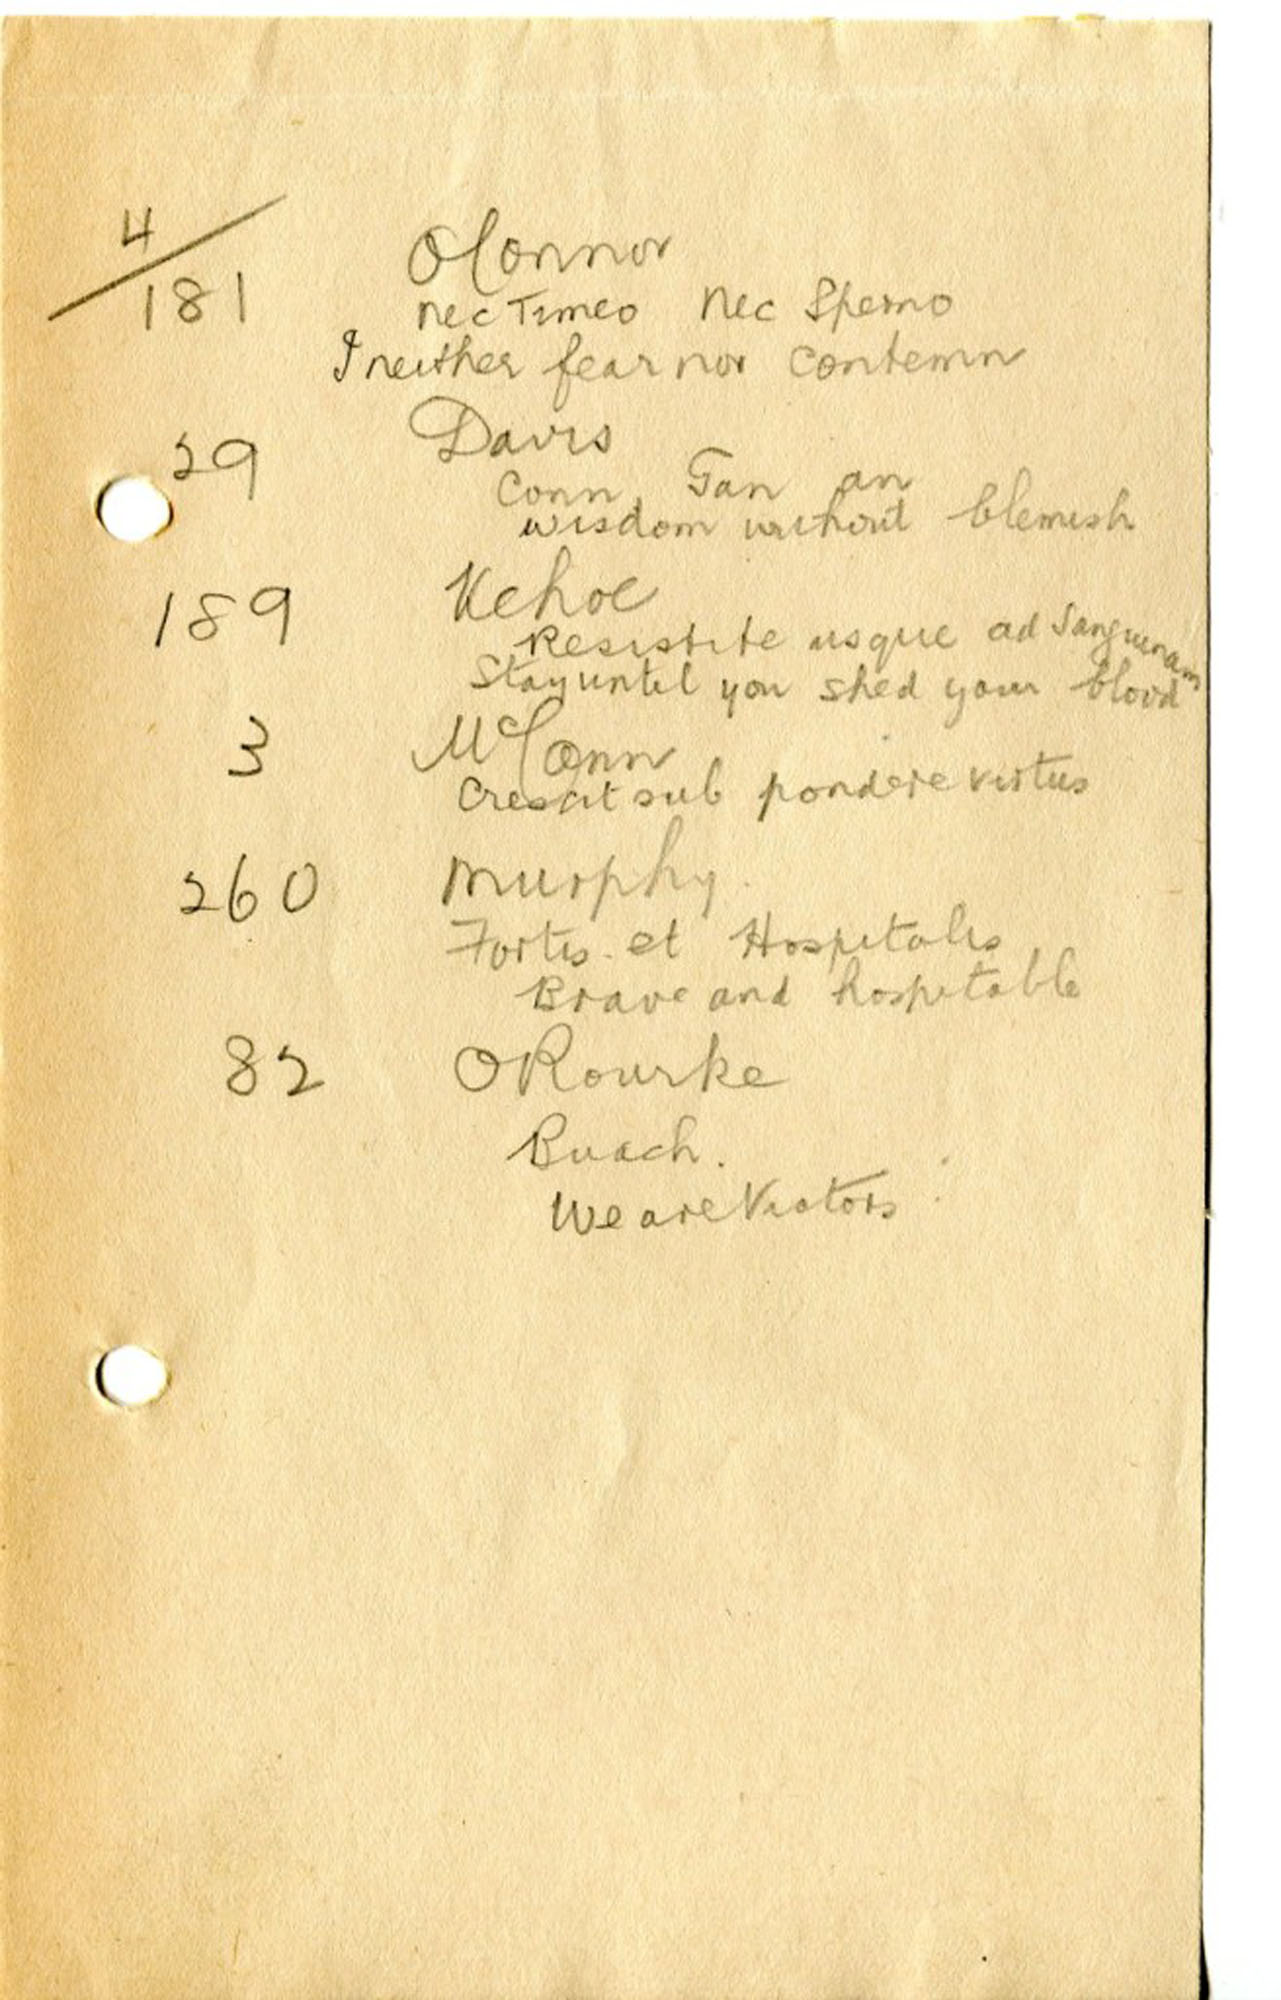 4/181 O'Connor
Nec Timeo Nec Sperno
I neither fear nor contemn
29 Davis
Conn, Gan an
wisdom without blemish
189 Kehoe
Resistite usque ad Sanguinam
Stay until you shed your blood
3 McCann
Crescit sub pondere virtus
260 Murphy
Fortis et Hospitalis
Brave and hospitable
82 ORourke
Buach.
We are Victors